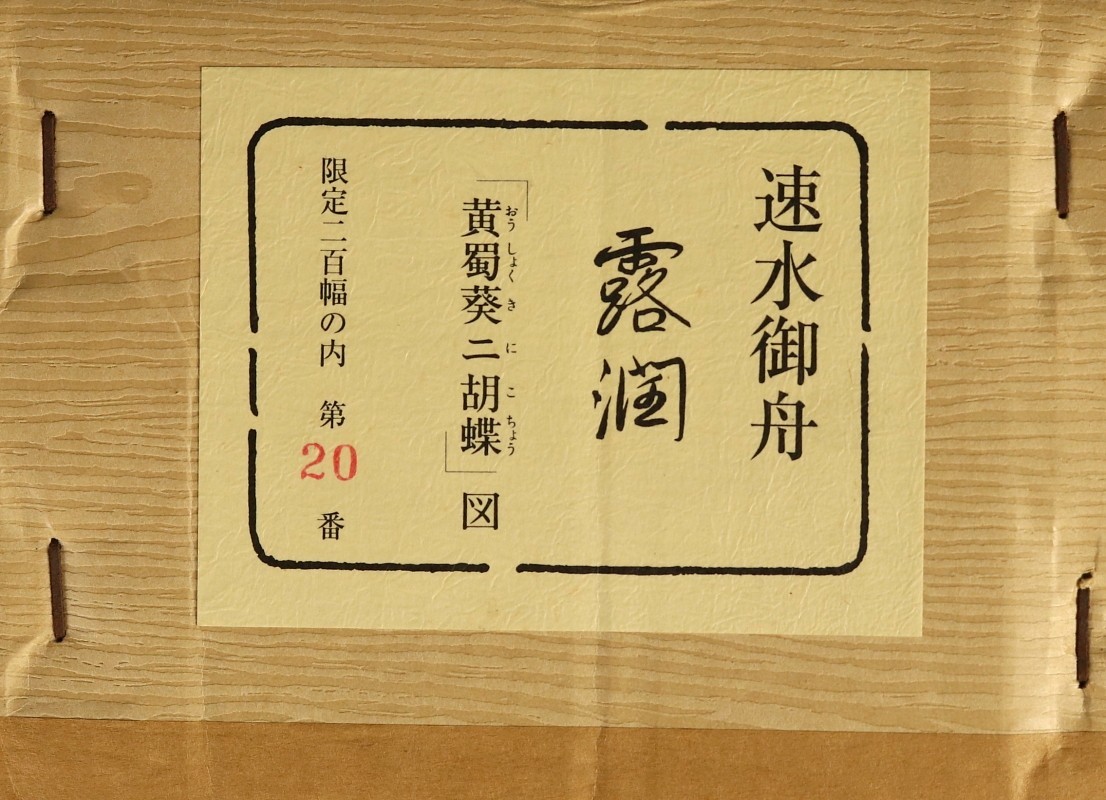 速水御舟
露潤
「黄蜀葵ニ胡蝶」図
おうしょくきにこちょう
限定二百幅の内 第20番